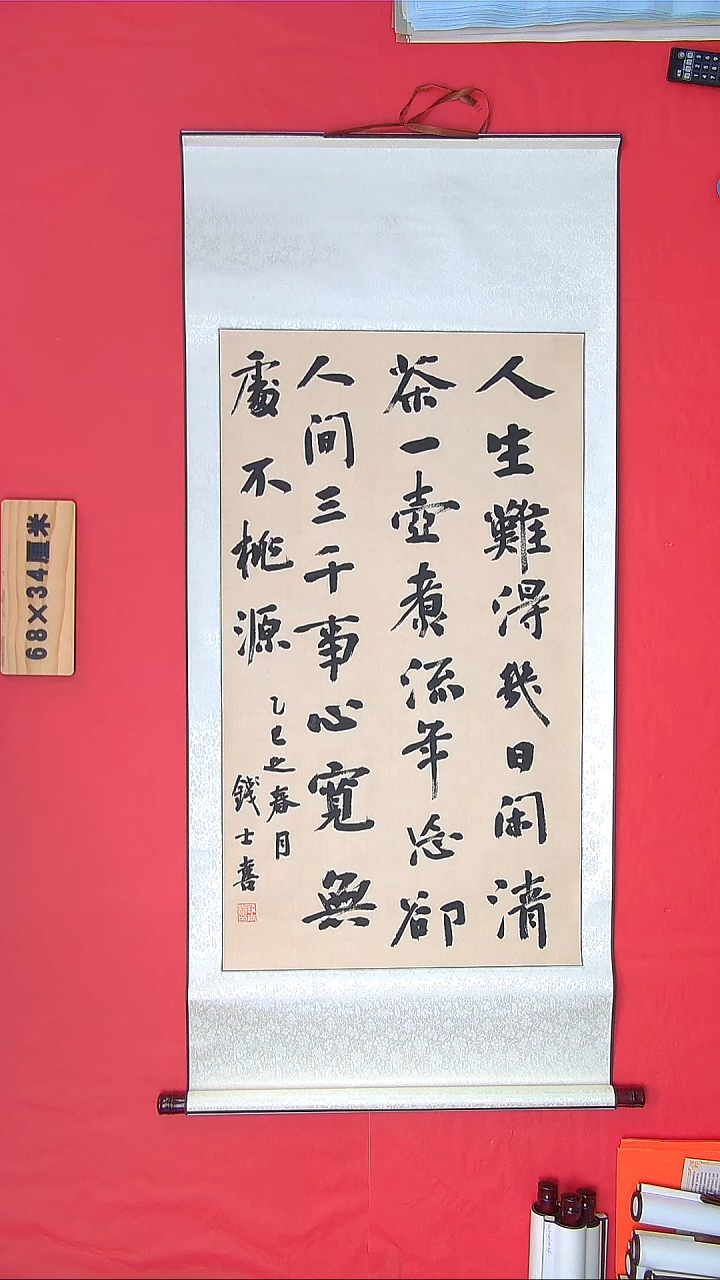 人生難得幾日闲清
茶一壺煮流年忘卻
人间三千事心寬無
處不桃源
乙巳之春月
錢士喜
68×34厘米